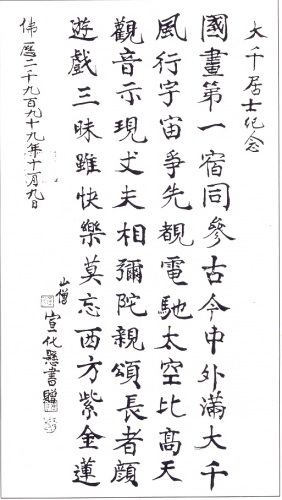 大千居士纪念
國畫第一宿同參古今中外滿大千
風行宇宙爭先覩電馳太空比高天
觀音示現丈夫相彌陀親頌長者顔
遊戲三昧雖快樂莫忘西方紫金蓮
山僧
宣化愚書贈
佛曆二千九百九十九年十一月九日